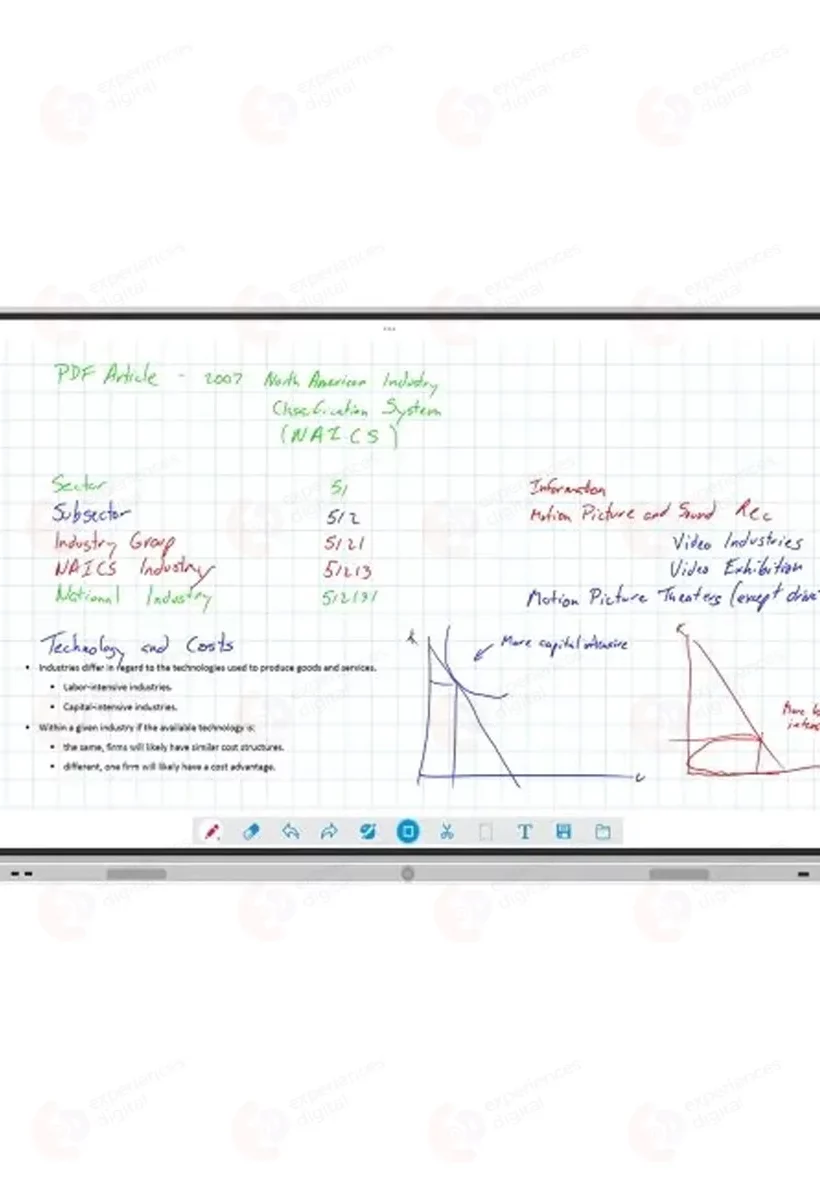 PDF Article - 2007 North American Industry
Classification System
(NAICS)
Sector 51 Information
Subsector 512 Motion Picture and Sound Rec
Industry Group 5121 Video Industries
NAICS Industry 51213 Video Exhibition
National Industry 512131 Motion Picture Theaters (except drive
Technology and Costs
• Industries differ in regard to the technologies used to produce goods and services.
• Labor-intensive industries.
• Capital-intensive industries.
• Within a given industry if the available technology is:
• the same, firms will likely have similar cost structures.
• different, one firm will likely have a cost advantage.
K
More capital intensive
L
K
More
T
experiences
digital